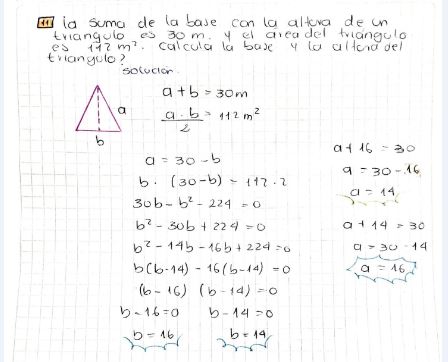 11 la suma de la base con la altura de un
triangulo es 30 m. y el area del triangulo
es 112 m². calcula la base y la altura del
triangulo?
solucion.
a
b
a + b = 30m
a · b / 2 = 112 m²
a = 30 - b
b · (30 - b) = 112 · 2
30b - b² - 224 = 0
b² - 30b + 224 = 0
b² - 14b - 16b + 224 = 0
b(b - 14) - 16(b - 14) = 0
(b - 16) (b - 14) = 0
b - 16 = 0 b - 14 = 0
b = 16 b = 14
a + 16 = 30
a = 30 - 16
a = 14
a + 14 = 30
a = 30 - 14
a = 16